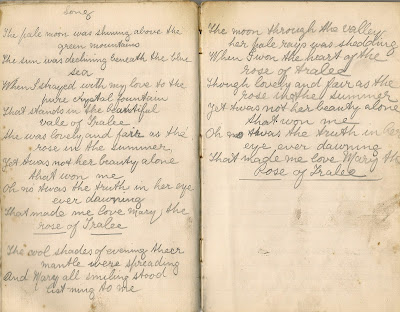 Song
The pale moon was shining above the
green mountains
The sun was declining beneath the blue
sea
When I strayed with my love to the
pure crystal fountain
That stands in the beautiful
vale of Tralee
She was lovely and fair as the
rose in the summer
Yet twas not her beauty alone
that won me
Oh no twas the truth in her eye
ever dawning
That made me love Mary, the
rose of Tralee
The cool shades of evening theer
mantle were spreading
And Mary all smiling stood
list-ning to me
The moon through the valley
her pale rays was shedding
When I won the heart of the
rose of Tralee
Though lovely and fair as the
rose in the summer
Yet twas not her beauty alone
that won me
Oh no twas the truth in her
eye ever dawning
That made me love Mary the
Rose of Tralee